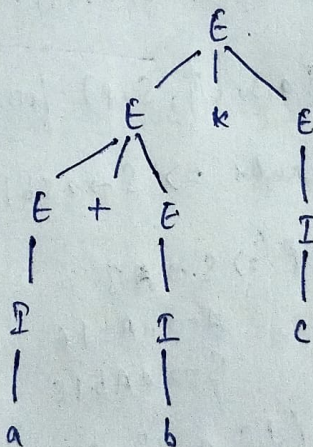 E
E * E
E + E I
I I c
a b